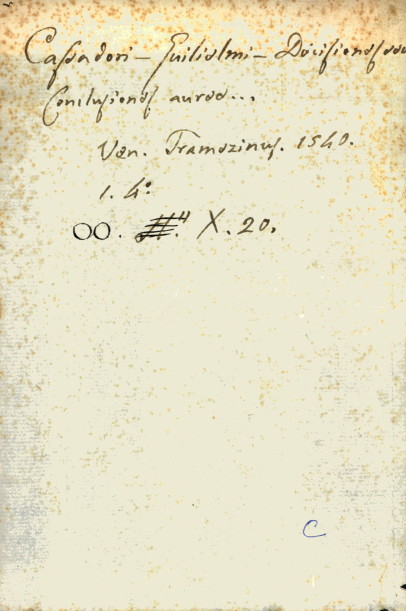 Cassadori – Guilielmi – Decisiones seu
Conclusiones aureae...
Ven. Tramezinus. 1540.
1. 4º
OO. X. 20.
C